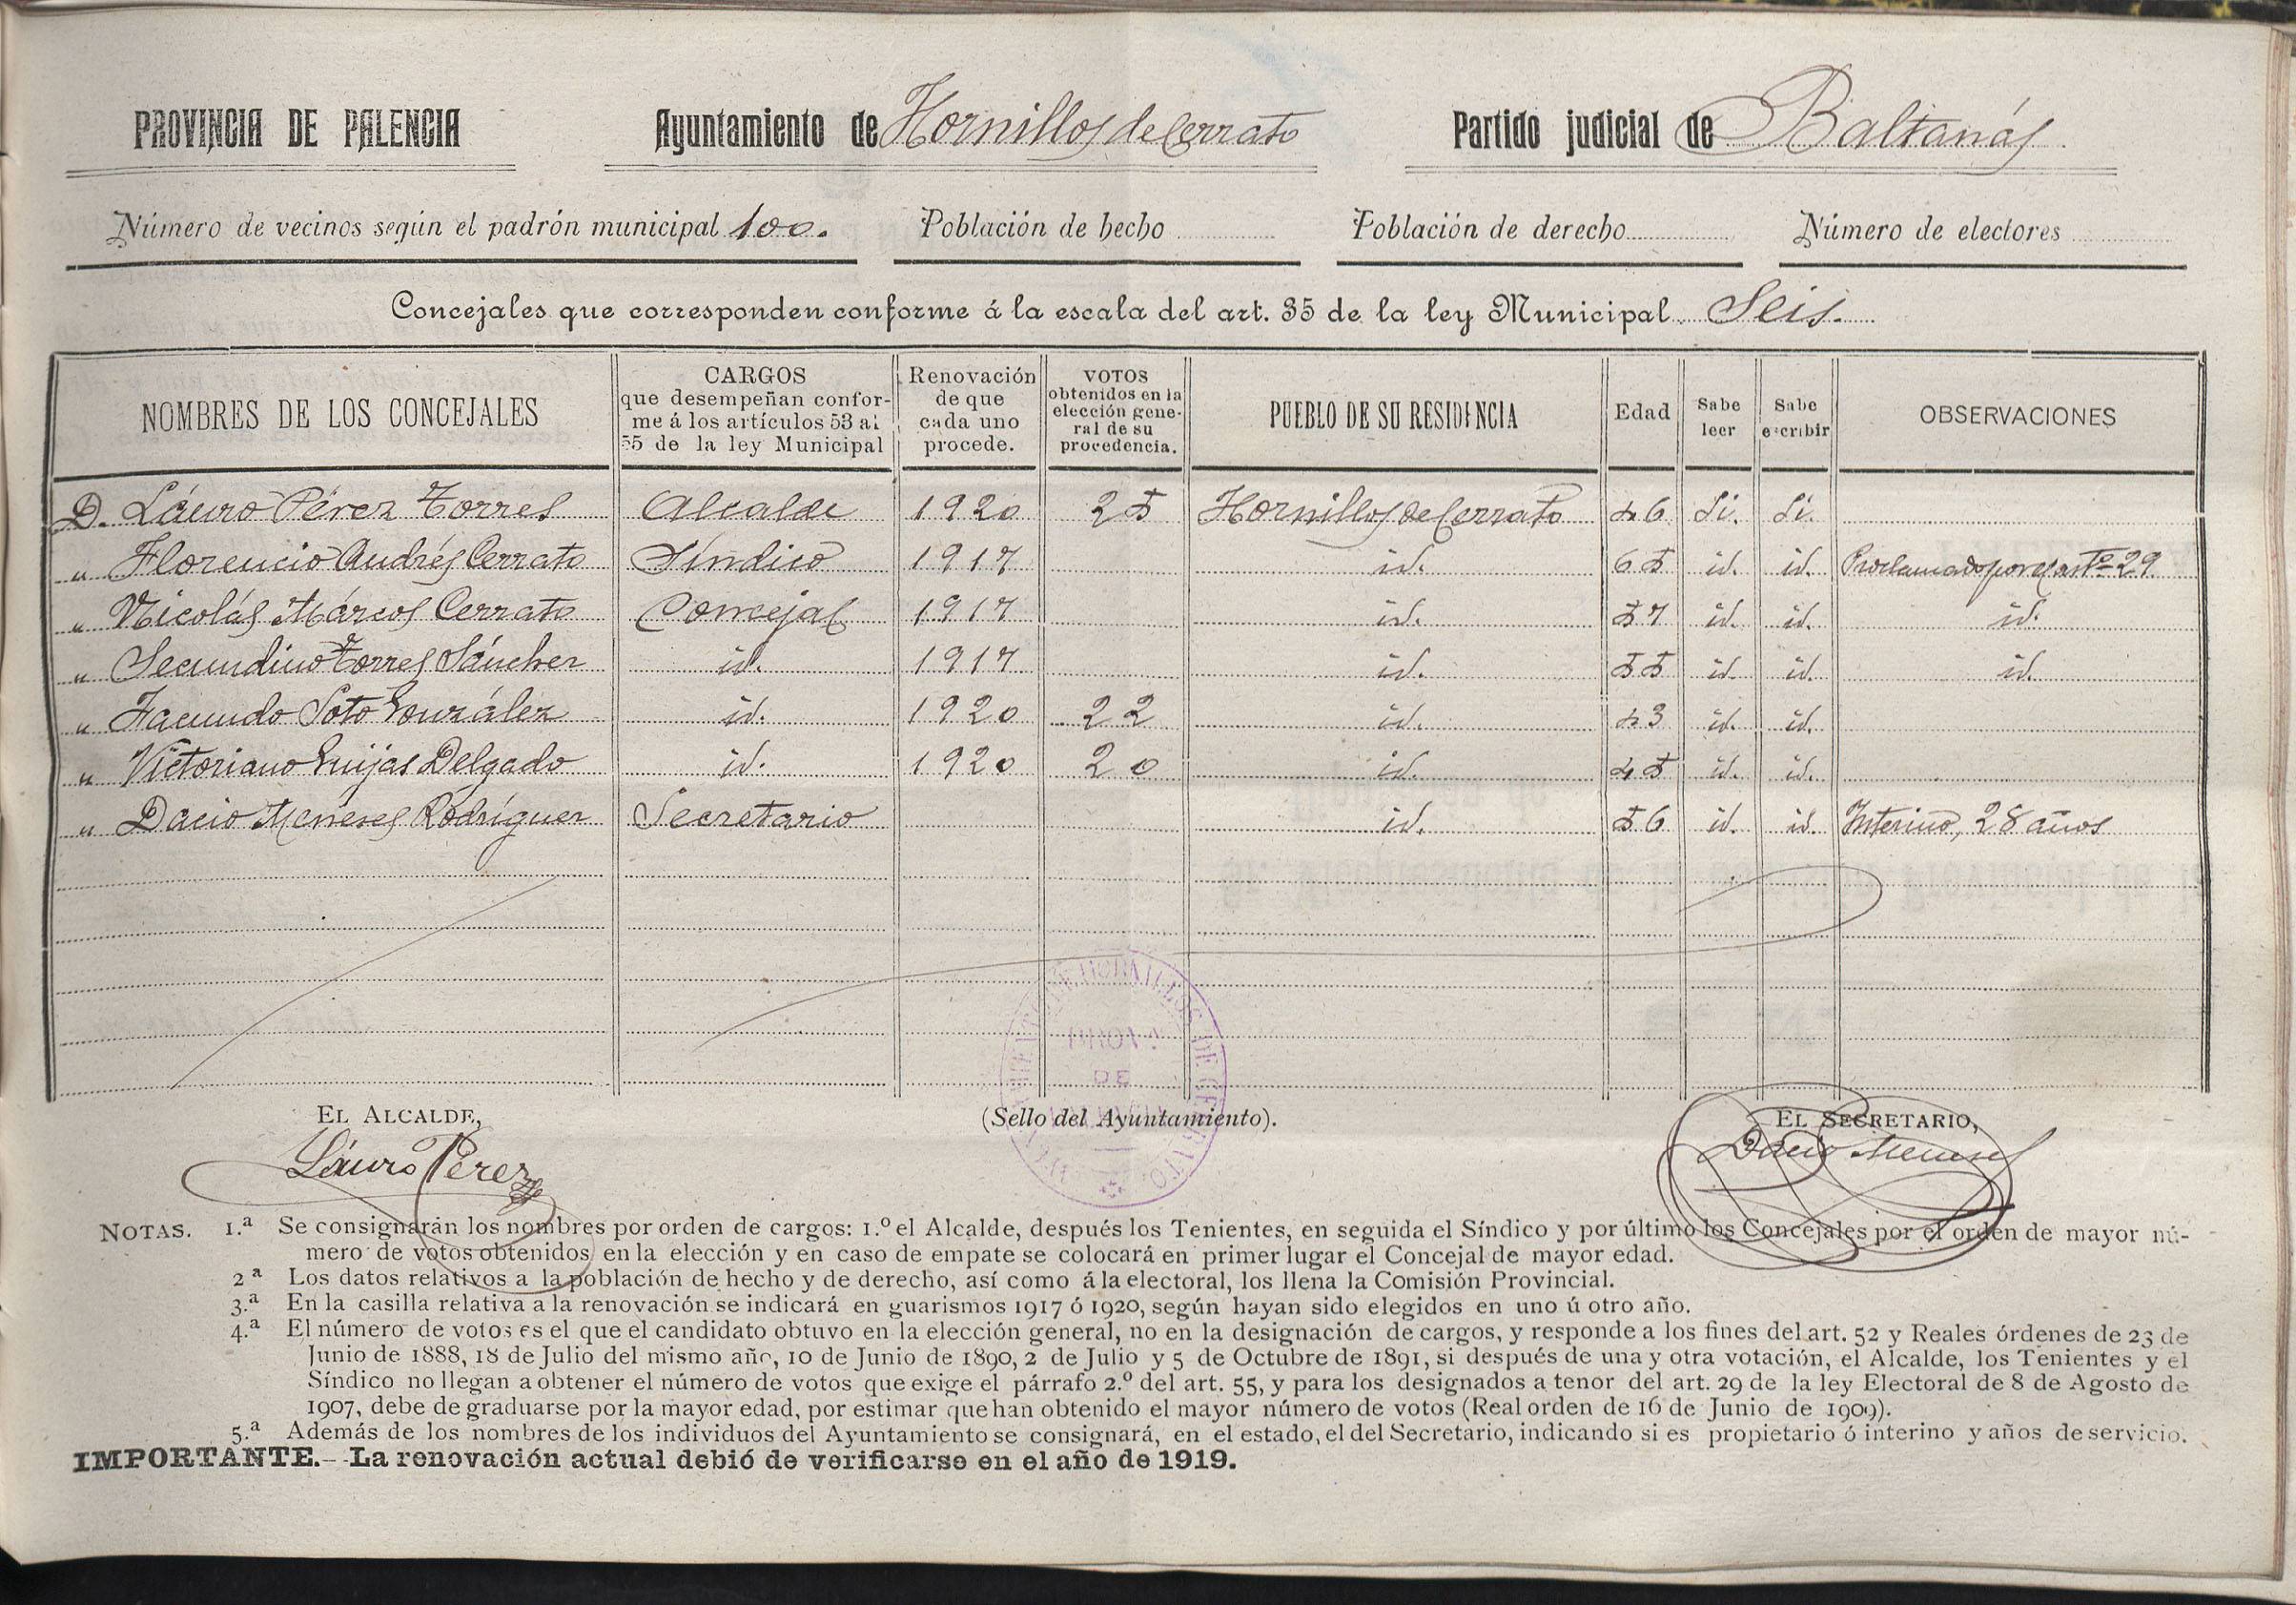 PROVINCIA DE PALENCIA Ayuntamiento de Hornillos de Cerrato Partido judicial de Baltanás
Número de vecinos según el padrón municipal 100. Población de hecho Población de derecho Número de electores
Concejales que corresponden conforme á la escala del art. 35 de la ley Municipal Seis.
NOMBRES DE LOS CONCEJALES
CARGOS
que desempeñan confor-
me á los artículos 53 al
55 de la ley Municipal
Renovación
de que
cada uno
procede.
VOTOS
obtenidos en la
elección gene-
ral de su
procedencia.
PUEBLO DE SU RESIDENCIA
Edad
Sabe
leer
Sabe
escribir
OBSERVACIONES
D. Láuro Pérez Torres Alcalde 1920 25 Hornillos de Cerrato 46 Si. Si.
" Florencio Andrés Cerrato Síndico 1917 id. 65 id. id. Proclamado por el artº 29
" Nicolás Márcos Cerrato Concejal 1917 id. 57 id. id. id.
" Secundino Torres Sánchez id. 1917 id. 55 id. id. id.
" Facundo Soto González id. 1920 22 id. 43 id. id.
" Victoriano Guijas Delgado id. 1920 20 id. 45 id. id.
" Dacio Meneses Rodríguez Secretario id. 56 id. id. Interino, 28 años
EL ALCALDE, (Sello del Ayuntamiento). EL SECRETARIO,
Láuro Pérez Dacio Meneses
PROV.ª
DE
NOTAS. 1.ª Se consignarán los nombres por orden de cargos: 1.º el Alcalde, después los Tenientes, en seguida el Síndico y por último los Concejales por el orden de mayor nú-
mero de votos obtenidos en la elección y en caso de empate se colocará en primer lugar el Concejal de mayor edad.
2ª Los datos relativos a la población de hecho y de derecho, así como á la electoral, los llena la Comisión Provincial.
3.ª En la casilla relativa a la renovación se indicará en guarismos 1917 ó 1920, según hayan sido elegidos en uno ú otro año.
4.ª El número de votos es el que el candidato obtuvo en la elección general, no en la designación de cargos, y responde a los fines del art. 52 y Reales órdenes de 23 de
Junio de 1888, 18 de Julio del mismo año, 10 de Junio de 1890, 2 de Julio y 5 de Octubre de 1891, si después de una y otra votación, el Alcalde, los Tenientes y el
Síndico no llegan a obtener el número de votos que exige el párrafo 2.º del art. 55, y para los designados a tenor del art. 29 de la ley Electoral de 8 de Agosto de
1907, debe de graduarse por la mayor edad, por estimar que han obtenido el mayor número de votos (Real orden de 16 de Junio de 1909).
5.ª Además de los nombres de los individuos del Ayuntamiento se consignará, en el estado, el del Secretario, indicando si es propietario ó interino y años de servicio.
IMPORTANTE.--La renovación actual debió de verificarse en el año de 1919.